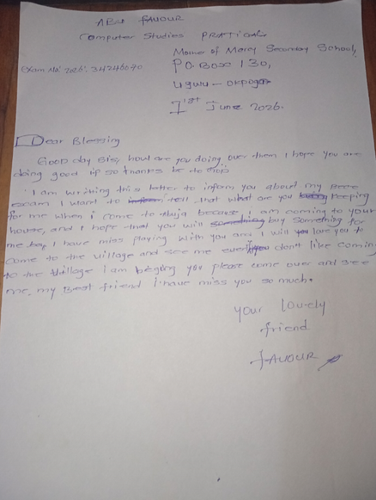 ABU FAVOUR
Computer Studies PRACTICAL
Exam No: 2026: 34246040
Mother of Mercy Secondary School,
P.O. Box 130,
Ugwu - Otukpo
1st June 2026.
Dear Blessing
Good day sis, how are you doing over there I hope you are
doing good if so thanks be to God
I am writing this letter to inform you about my
exam I want to tell that what are you keeping
for me when i come to Abuja because i am coming to your
house, and I hope that you will buy something for
me, I have miss playing with you and I will love you to
come to the village and see me even don't like coming
to the village i am beging you please come over and see
me, my best friend I have miss you so much.
your lovely
friend
FAVOUR